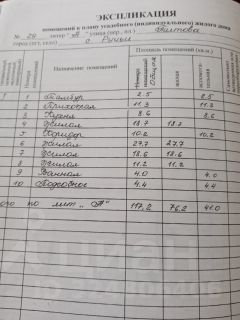 ЭКСПЛИКАЦИЯ
помещений к плану усадебного (индивидуального) жилого дома
№ 29 литер "А" улица (пер., пл.)
город (пгт, село) с.
Назначение помещений
Площадь помещений (кв.м.)
Общая
жилая
1 1 Тамбур 2.5 2.5
2 Прихожая 11.3 11.3
3 Кухня 8.6 8.6
4 Жилая 18.7 18.7
5 Коридор 10.2 10.2
6 Жилая 27.7 27.7
7 Жилая 18.6 18.6
8 Жилая 11.2 11.2
9 Ванная 4.0 4.0
10 Подсобное 4.4 4.4
по лит "А" 117,2 76,2 41.0